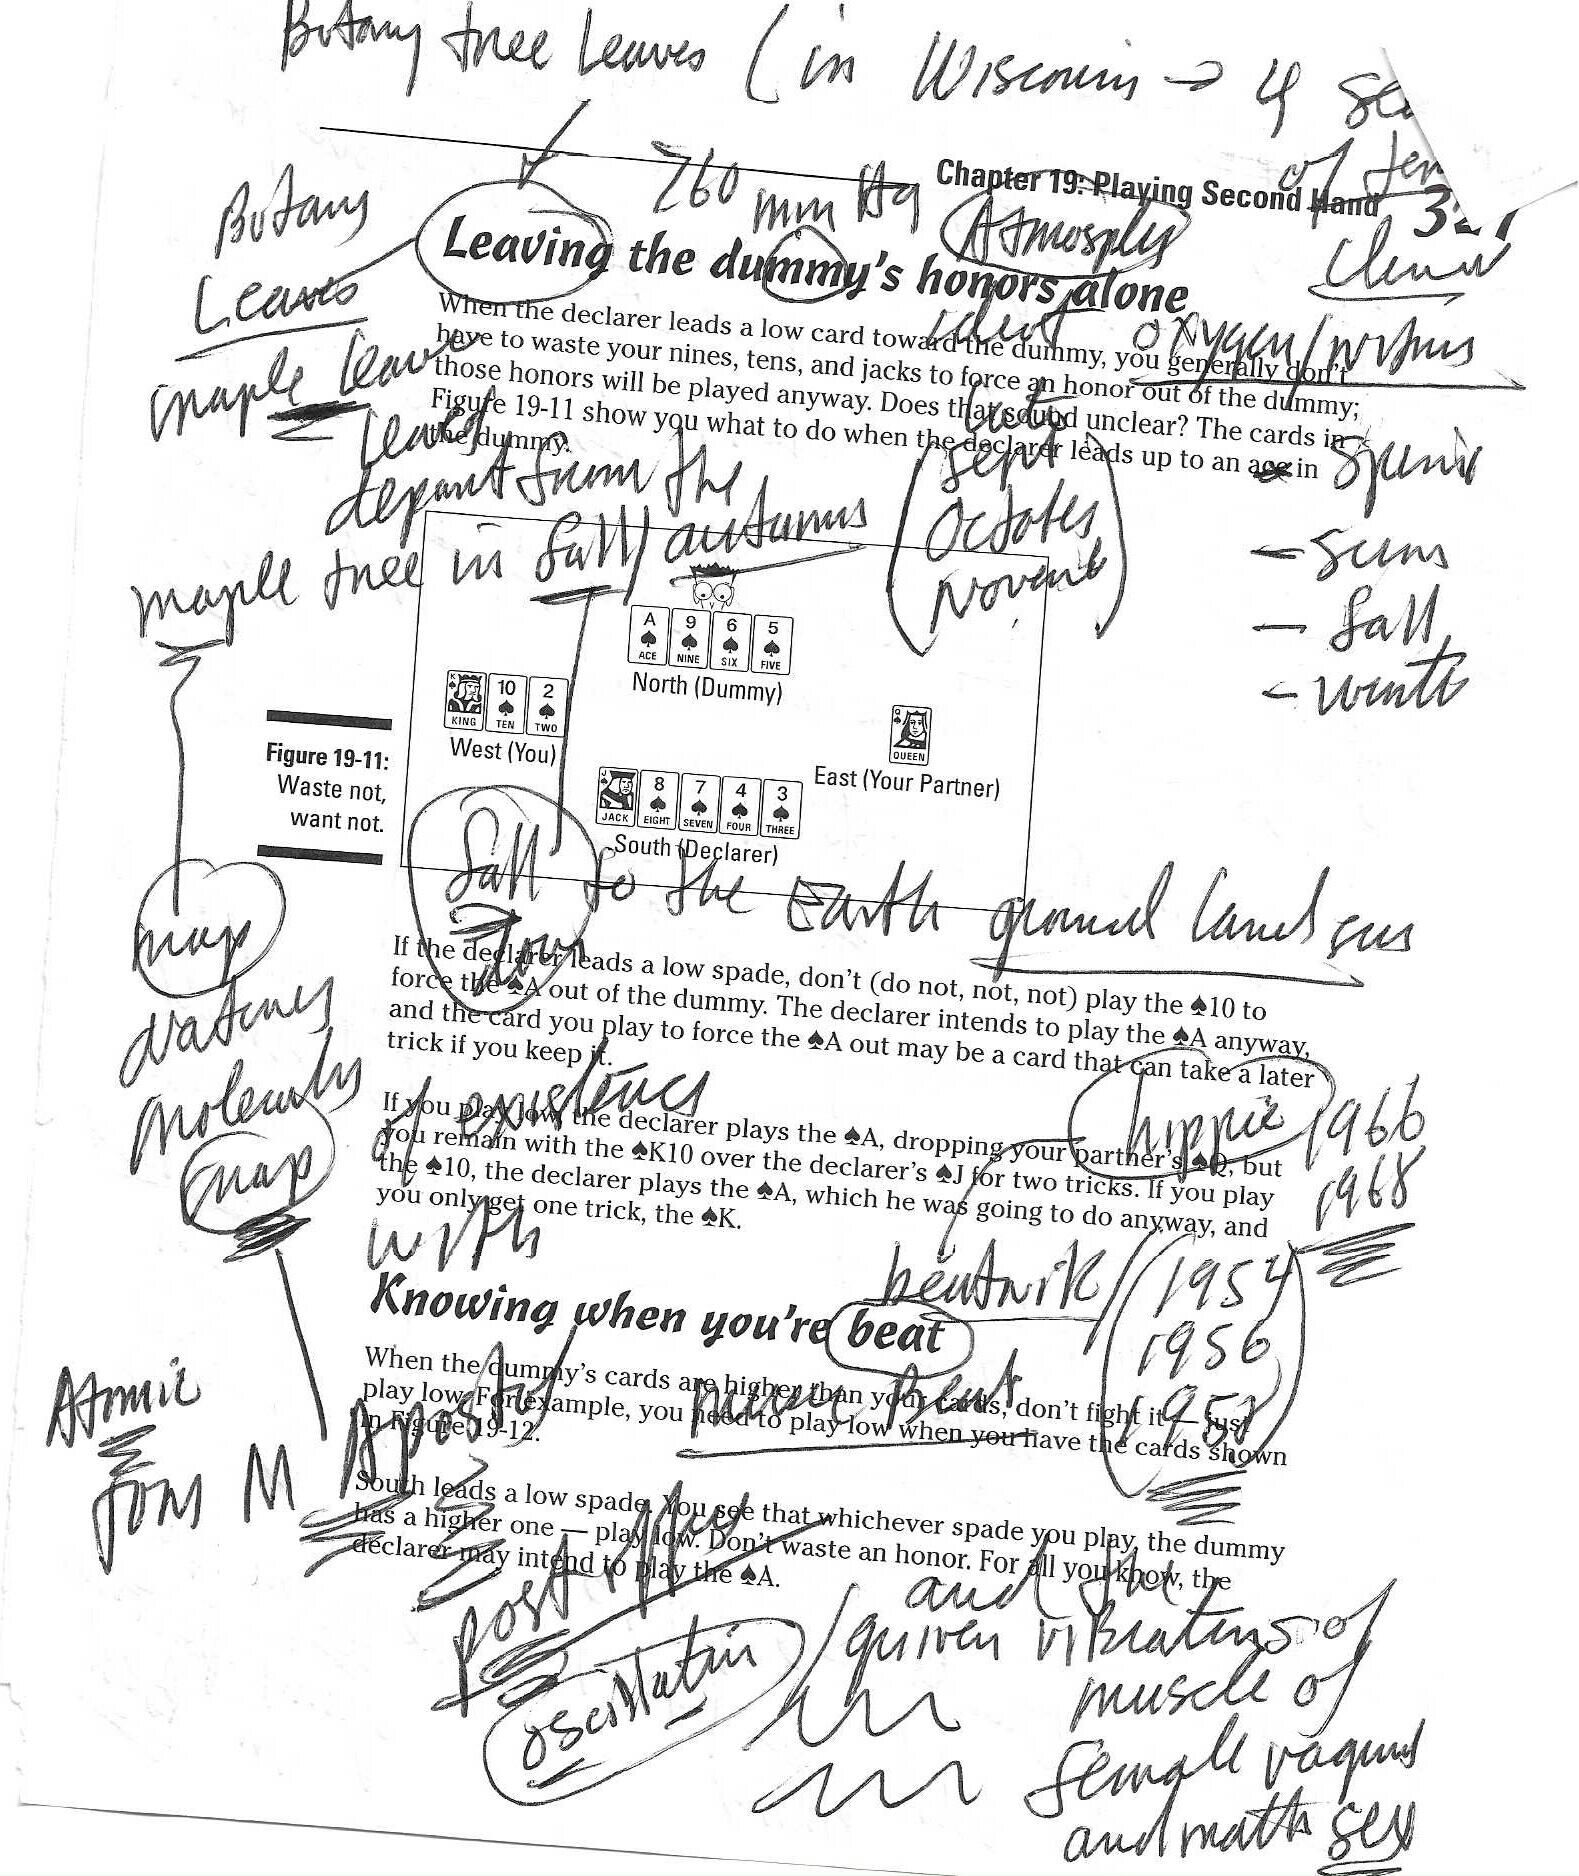 Botany tree leaves (in Wisconsin → 4
of
Chapter 19: Playing Second Hand
760 mm Hg
Botany
Leaves
Leaving the dummy's honors alone
oxygen/
When the declarer leads a low card toward the dummy, you generally don't
have to waste your nines, tens, and jacks to force an honor out of the dummy;
those honors will be played anyway. Does that sound unclear? The cards in
Figure 19-11 show you what to do when the declarer leads up to an ace in
the dummy.
maple leave
leaves
depart from the
maple tree in fall/autumn
(
sept
)
- fall
A ACE
9 NINE
6 SIX
5 FIVE
North (Dummy)
K KING
10 TEN
2 TWO
West (You)
Q QUEEN
East (Your Partner)
J JACK
8 EIGHT
7 SEVEN
4 FOUR
3 THREE
South (Declarer)
Figure 19-11:
Waste not,
want not.
fall to the Earth ground land
down
map
If the declarer leads a low spade, don't (do not, not, not) play the ♠10 to
force the ♠A out of the dummy. The declarer intends to play the ♠A anyway,
and the card you play to force the ♠A out may be a card that can take a later
trick if you keep it.
molecules
map
of existence
with
hippie 1966
1968
If you play low, the declarer plays the ♠A, dropping your partner's ♠Q, but
you remain with the ♠K10 over the declarer's ♠J for two tricks. If you play
the ♠10, the declarer plays the ♠A, which he was going to do anyway, and
you only get one trick, the ♠K.
beatnik (1954
1956
1958)
Knowing when you're beat
When the dummy's cards are higher than your cards, don't fight it — just
play low. For example, you need to play low when you have the cards shown
in Figure 19-12.
Atomic
M Apost
South leads a low spade. You see that whichever spade you play, the dummy
has a higher one — play low. Don't waste an honor. For all you know, the
declarer may intend to play the ♠A.
post office
and the
oscillation / quiver vibrations of
muscle of
female
and math sex